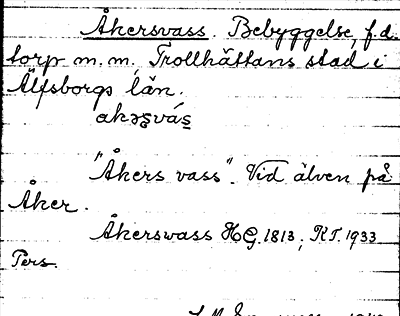 Åkersvass. Bebyggelse, f.d.
torp m.m., Trollhättans stad i
Älfsborgs län.
"Åkers vass". Vid älven på
Åker.
Åkerswass HG. 1813; RT. 1933
Pers.